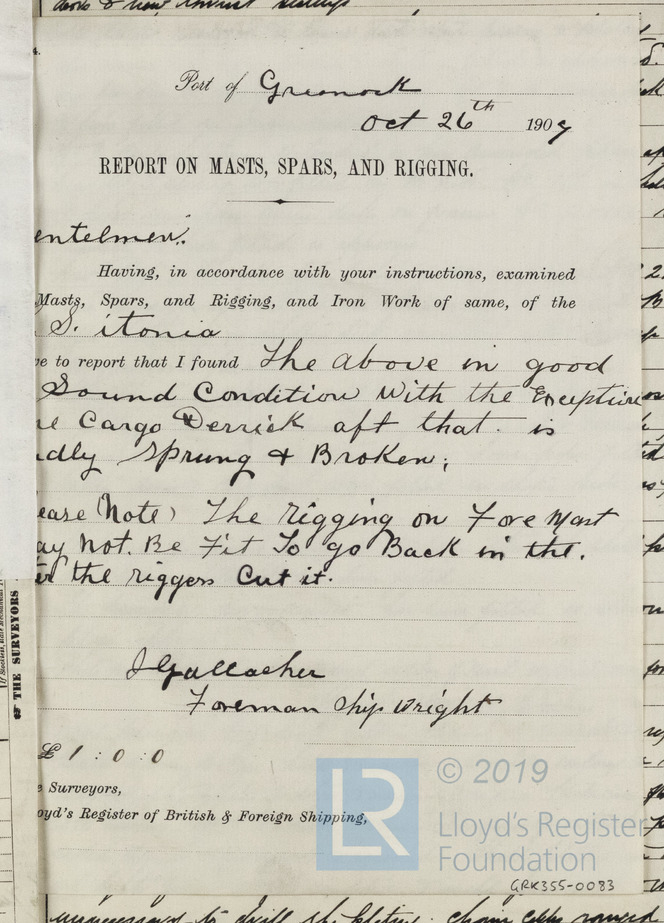 Port of Greenock
Oct 26th 1907
REPORT ON MASTS, SPARS, AND RIGGING.
entelmen:
Having, in accordance with your instructions, examined
Masts, Spars, and Rigging, and Iron Work of same, of the
S. itonia
ve to report that I found The above in good
Sound Condition With the Exception
he Cargo Derrick aft that is
adly Sprung & Broken;
lease Note) The Rigging on Fore Mast
ay Not. Be Fit To go Back in the.
the riggers Cut it.
J Gallacher
Foreman Ship Wright
£ 1 : 0 : 0
e Surveyors,
oyd's Register of British & Foreign Shipping,
THE SURVEYORS
© 2019
LR
Lloyd's Register
Foundation
GRK355-0083